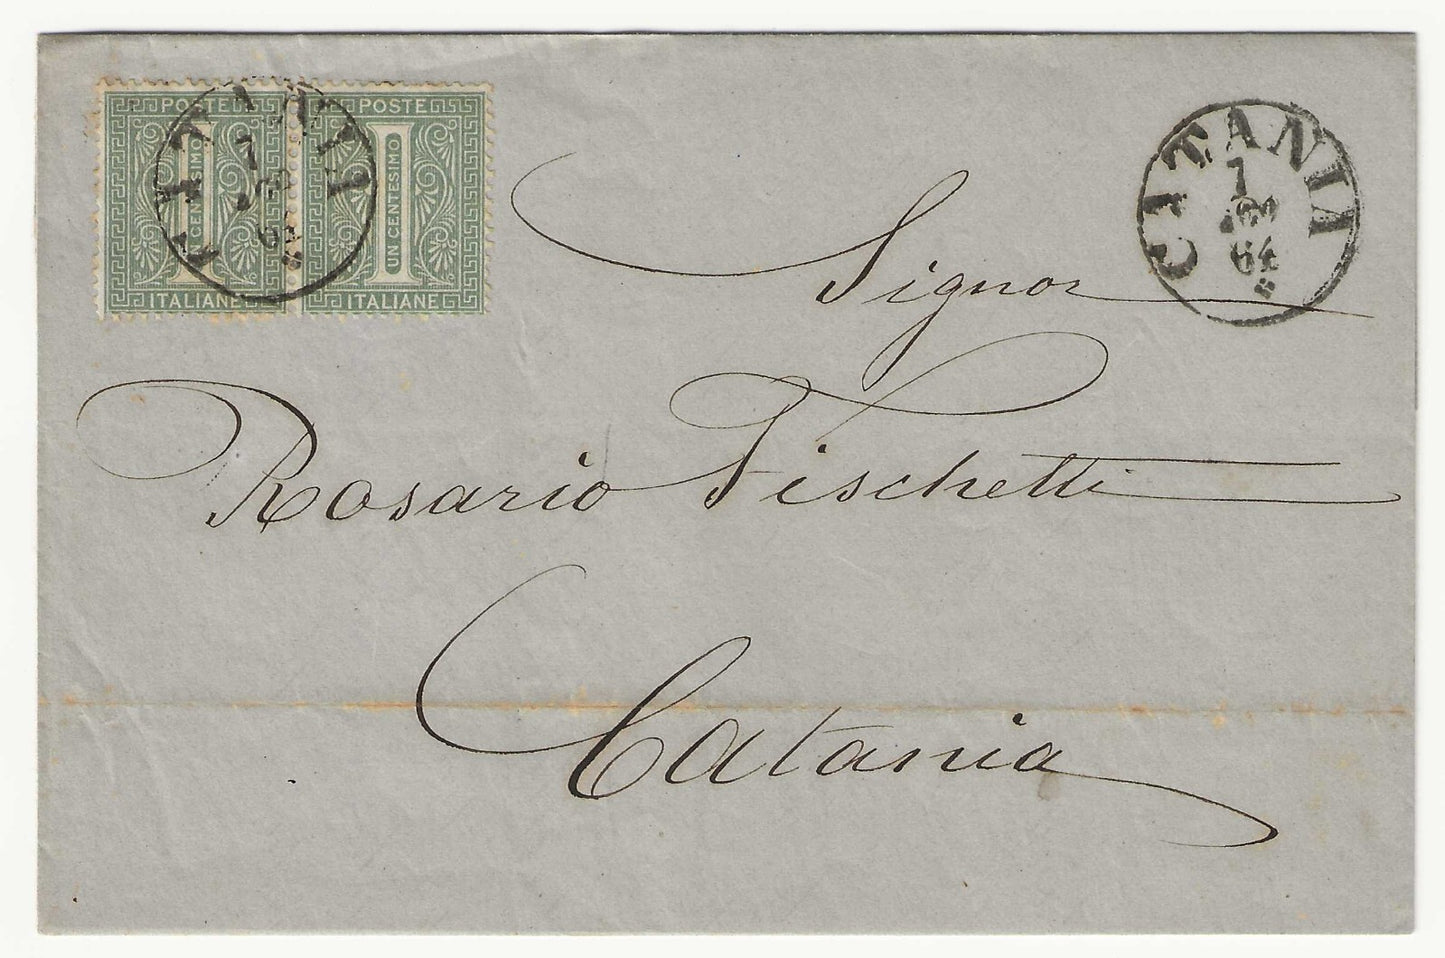 POSTE POSTE
UN CENTESIMO UN CENTESIMO
ITALIANE ITALIANE
CATANIA
7
64
CATANIA
64
Signor
Rosario Fischetti
Catania